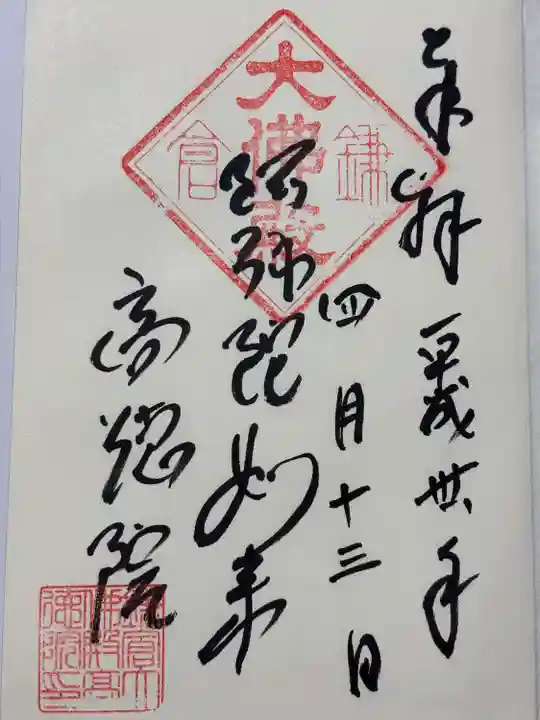 奉拝 平成卅年
四月十三日
阿弥陀如来
高徳院
鎌倉
大佛殿